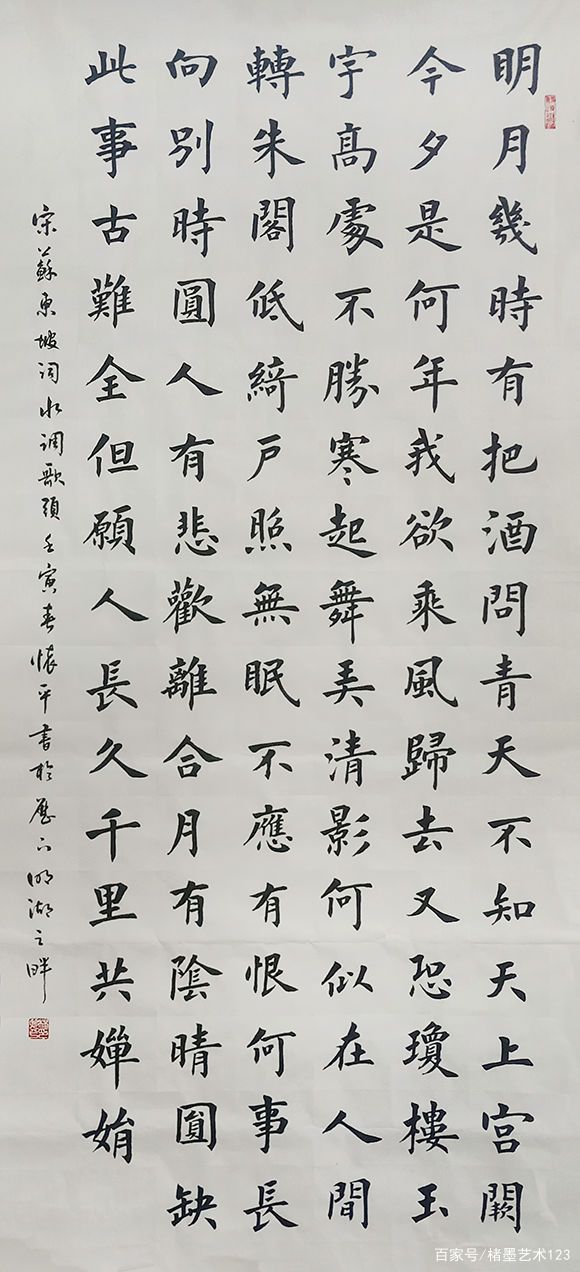 明月幾時有把酒問青天不知天上宮闕
今夕是何年我欲乘風歸去又恐瓊樓玉
宇髙處不勝寒起舞弄清影何似在人間
轉朱閣低綺戶照無眠不應有恨何事長
向別時圓人有悲歡離合月有陰晴圓缺
此事古難全但願人長久千里共嬋娟
宋蘇東坡詞水調歌頭壬寅春懷平書於歷下明湖之畔
百家号/楮墨艺术123